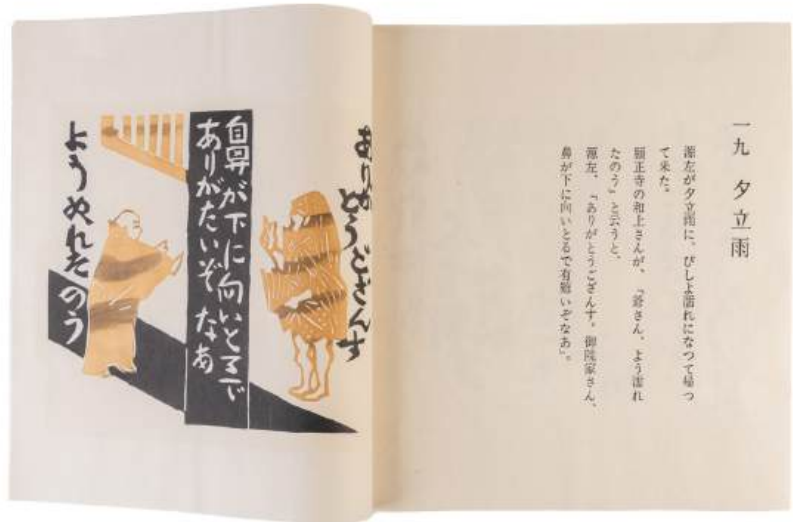 一九 夕立雨
源左が夕立雨に、びしよ濡れになつて帰つ
て来た。
願正寺の和上さんが、「爺さん、よう濡れ
たのう」と云うと、
源左、「ありがとうござんす。御院家さん、
鼻が下に向いとるで有難いぞなあ」。
ありがとうござんす
鼻が下に向いとるで
ありがたいぞなあ
ようぬれたのう